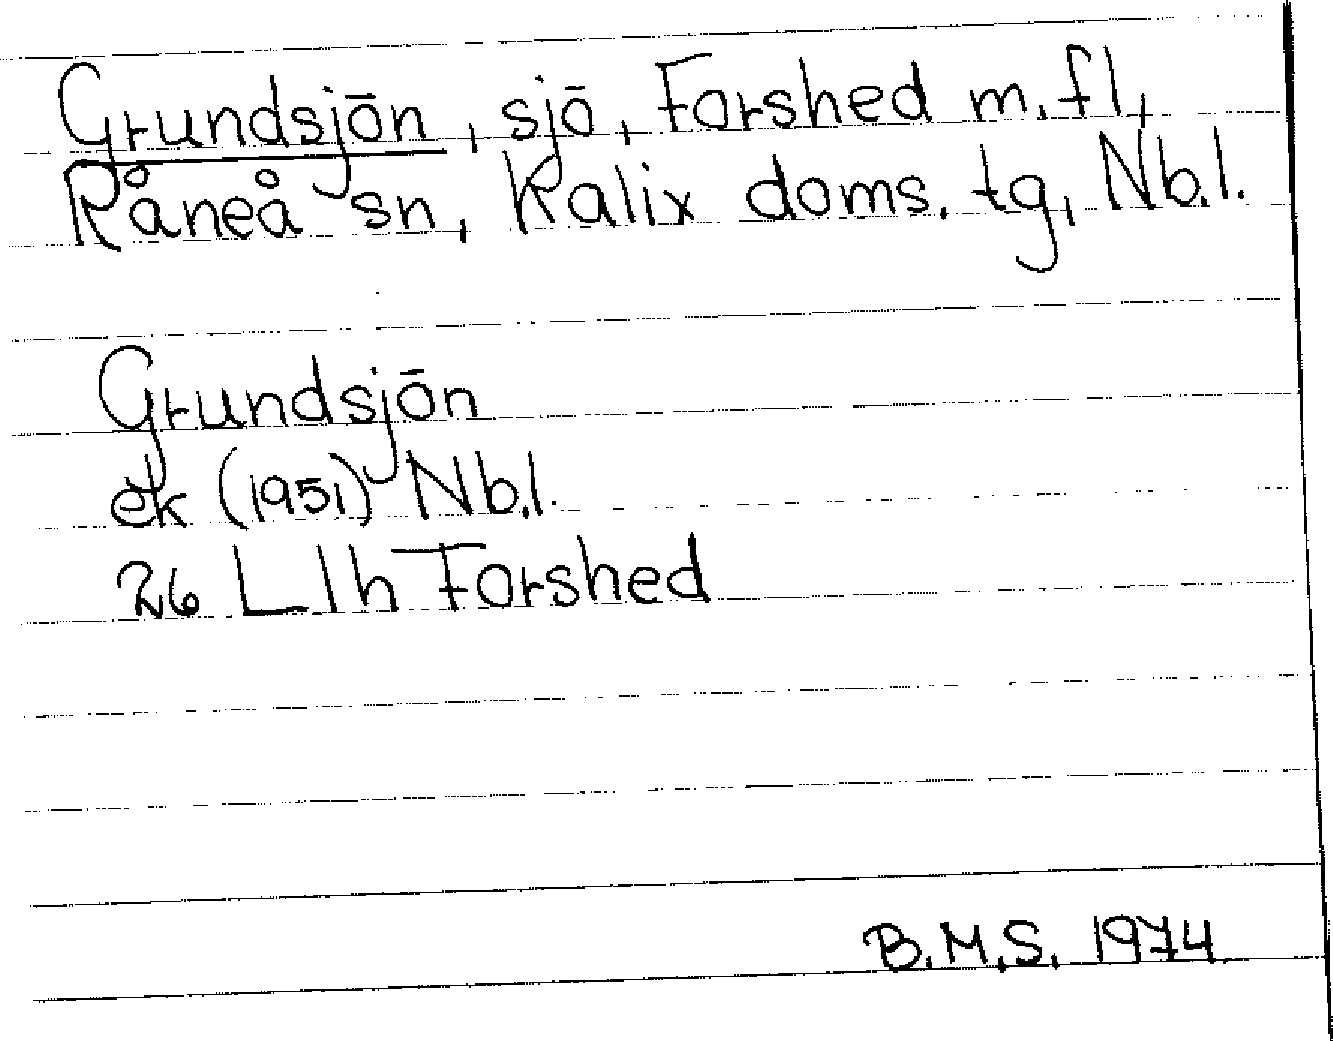 Grundsjön, sjö, Forshed m.fl,
Råneå sn, Kalix doms. tg, Nb.l.
Grundsjön
ek (1951) Nb.l.
26 L1h Forshed
B.M.S. 1974